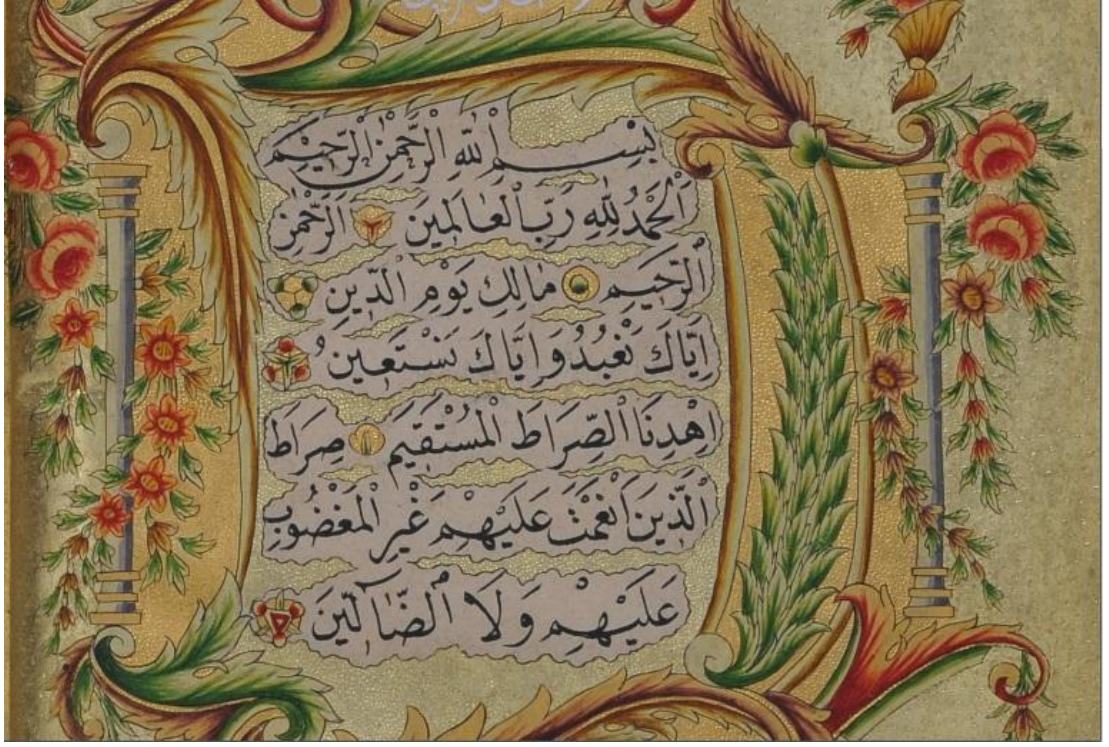 بِسْمِ اللّٰهِ الرَّحْمٰنِ الرَّحِيْمِ
اَلْحَمْدُ لِلّٰهِ رَبِّ الْعَالَمِينَ الرَّحْمٰنِ
الرَّحِيْمِ مَالِكِ يَوْمِ الدِّينِ
اِيَّاكَ نَعْبُدُ وَاِيَّاكَ نَسْتَعِينُ
اِهْدِنَا الصِّرَاطَ الْمُسْتَقِيْمَ صِرَاطَ
الَّذِينَ اَنْعَمْتَ عَلَيْهِمْ غَيْرِ الْمَغْضُوبِ
عَلَيْهِمْ وَلَا الضَّالِّينَ